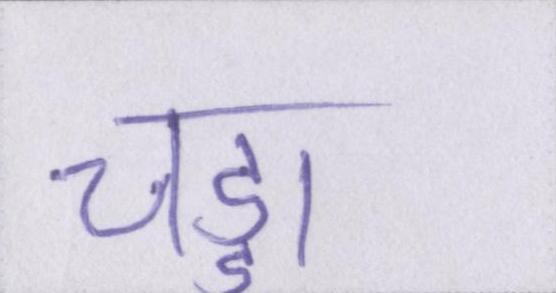 चड्डा